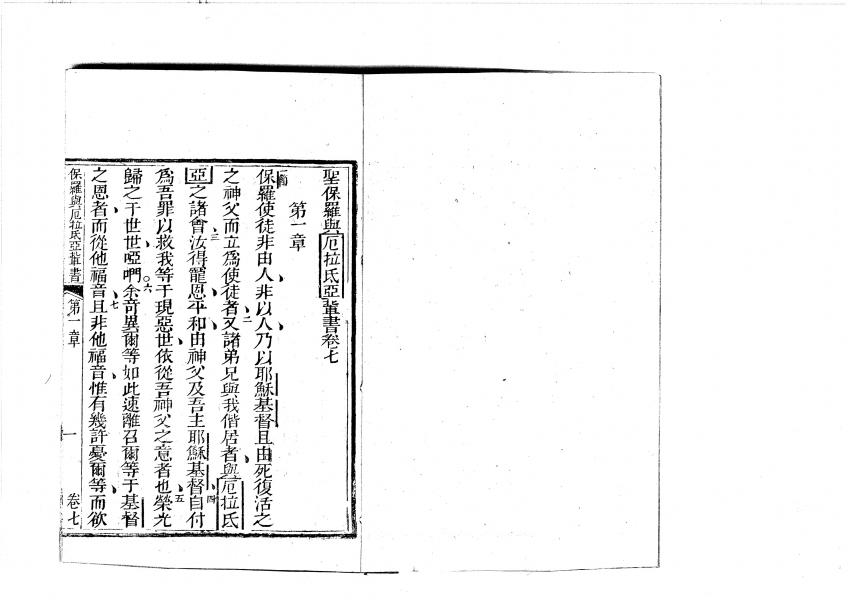 聖保羅與厄拉氐亞輩書卷七
第一章
一保羅使徒非由人非以人乃以耶穌基督且由死復活之
之神父而立爲使徒者二又諸弟兄與我偕居者與厄拉氐
亞之諸會三汝得寵恩平和由神父及吾主耶穌基督四自付
爲吾罪以救我等于現惡世依從吾神父之意者也五榮光
歸之于世世啞們六余奇異爾等如此速離召爾等于基督
之恩者而從他福音七且非他福音惟有幾許憂爾等而欲
保羅與厄拉氐亞輩書 第一章 一 卷七